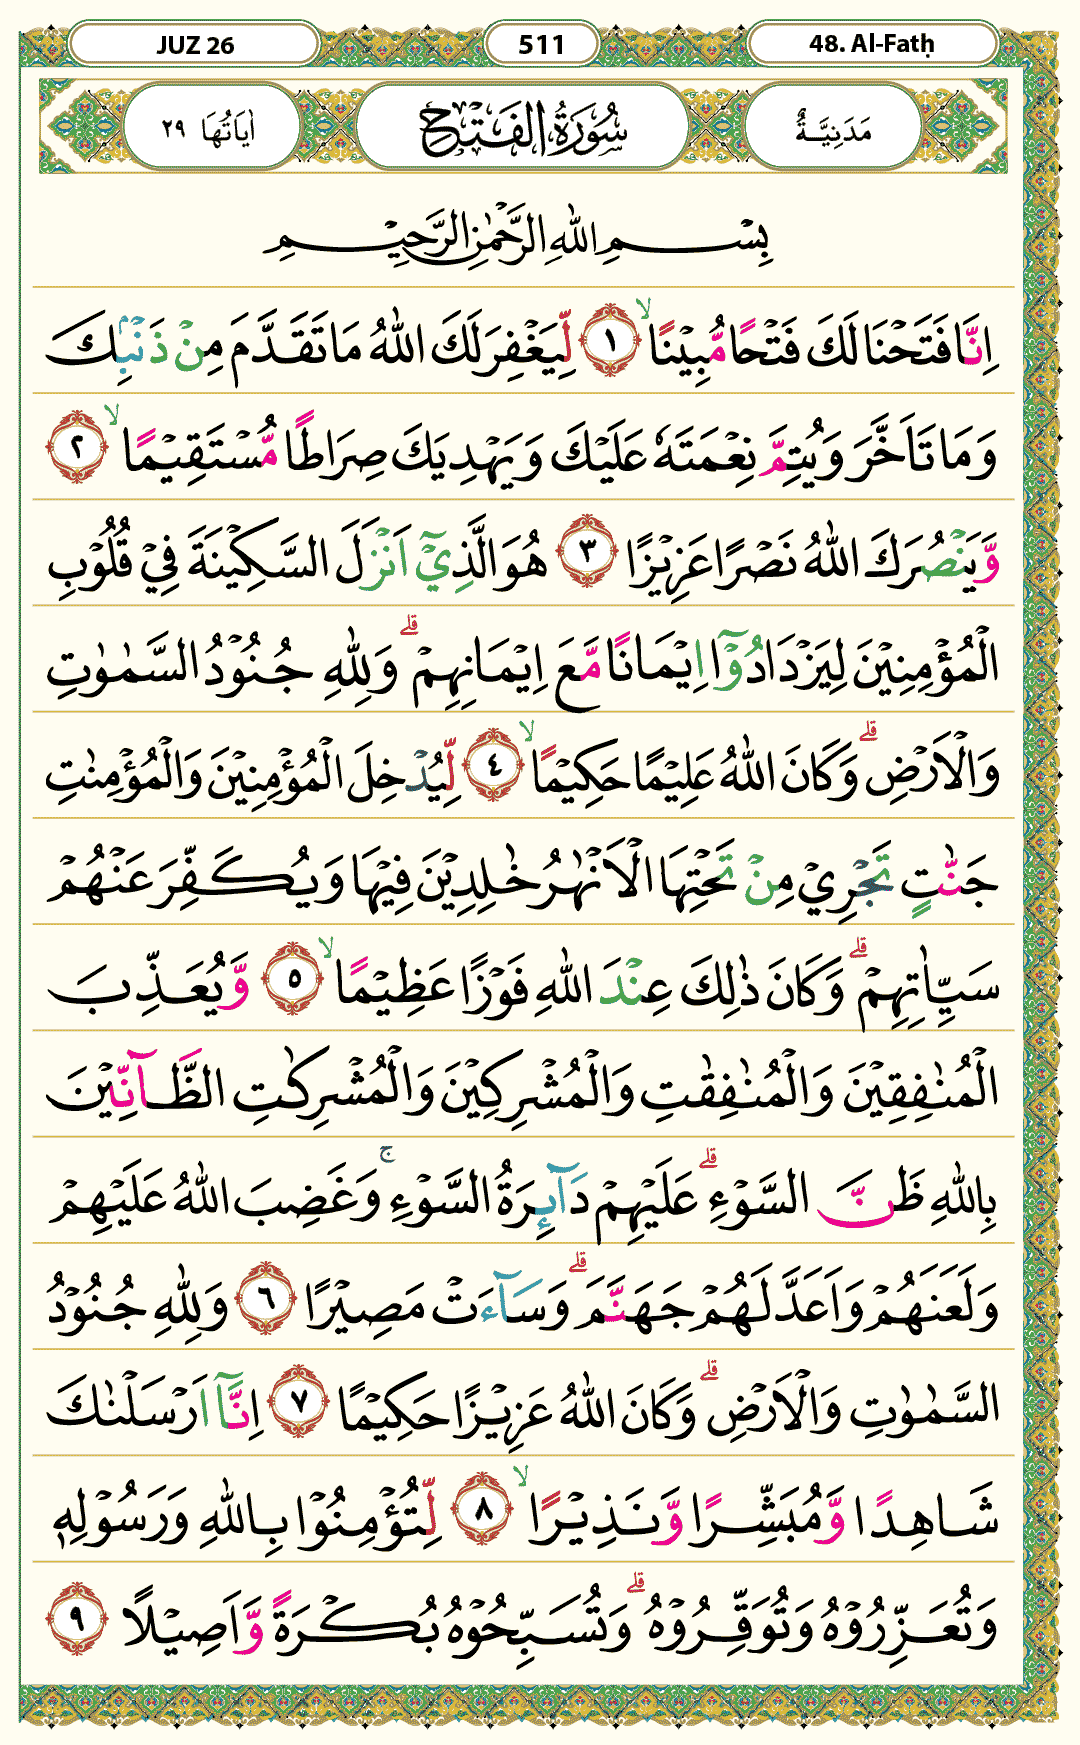 JUZ 26 511 48. Al-Fatḥ
مَدَنِيَّةٌ سُورَةُ الفَتۡحِ اٰيَاتُهَا ٢٩
بِسۡمِ اللهِ الرَّحۡمٰنِ الرَّحِيۡمِ
اِنَّا فَتَحۡنَا لَكَ فَتۡحًا مُّبِيۡنًا ۙ ١ لِّيَغۡفِرَ لَكَ اللهُ مَا تَقَدَّمَ مِنۡ ذَنۡۢبِكَ
وَمَا تَاَخَّرَ وَيُتِمَّ نِعۡمَتَهٗ عَلَيۡكَ وَيَهۡدِيَكَ صِرَاطًا مُّسۡتَقِيۡمًا ۙ ٢
وَّيَنۡصُرَكَ اللهُ نَصۡرًا عَزِيۡزًا ٣ هُوَ الَّذِيۡۤ اَنۡزَلَ السَّكِيۡنَةَ فِيۡ قُلُوۡبِ
الۡمُؤۡمِنِيۡنَ لِيَزۡدَادُوۡۤا اِيۡمَانًا مَّعَ اِيۡمَانِهِمۡ ۗ وَلِلّٰهِ جُنُوۡدُ السَّمٰوٰتِ
وَالۡاَرۡضِ ۗ وَكَانَ اللهُ عَلِيۡمًا حَكِيۡمًا ۙ ٤ لِّيُدۡخِلَ الۡمُؤۡمِنِيۡنَ وَالۡمُؤۡمِنٰتِ
جَنّٰتٍ تَجۡرِيۡ مِنۡ تَحۡتِهَا الۡاَنۡهٰرُ خٰلِدِيۡنَ فِيۡهَا وَيُكَفِّرَ عَنۡهُمۡ
سَيِّاٰتِهِمۡ ۗ وَكَانَ ذٰلِكَ عِنۡدَ اللهِ فَوۡزًا عَظِيۡمًا ۙ ٥ وَّيُعَذِّبَ
الۡمُنٰفِقِيۡنَ وَالۡمُنٰفِقٰتِ وَالۡمُشۡرِكِيۡنَ وَالۡمُشۡرِكٰتِ الظَّآنِّيۡنَ
بِاللهِ ظَنَّ السَّوۡءِ ۗ عَلَيۡهِمۡ دَآئِرَةُ السَّوۡءِ ۚ وَغَضِبَ اللهُ عَلَيۡهِمۡ
وَلَعَنَهُمۡ وَاَعَدَّ لَهُمۡ جَهَنَّمَ ۗ وَسَآءَتۡ مَصِيۡرًا ٦ وَلِلّٰهِ جُنُوۡدُ
السَّمٰوٰتِ وَالۡاَرۡضِ ۗ وَكَانَ اللهُ عَزِيۡزًا حَكِيۡمًا ٧ اِنَّاۤ اَرۡسَلۡنٰكَ
شَاهِدًا وَّمُبَشِّرًا وَّنَذِيۡرًا ۙ ٨ لِّتُؤۡمِنُوۡا بِاللهِ وَرَسُوۡلِهٖ
وَتُعَزِّرُوۡهُ وَتُوَقِّرُوۡهُ ۗ وَتُسَبِّحُوۡهُ بُكۡرَةً وَّاَصِيۡلًا ٩